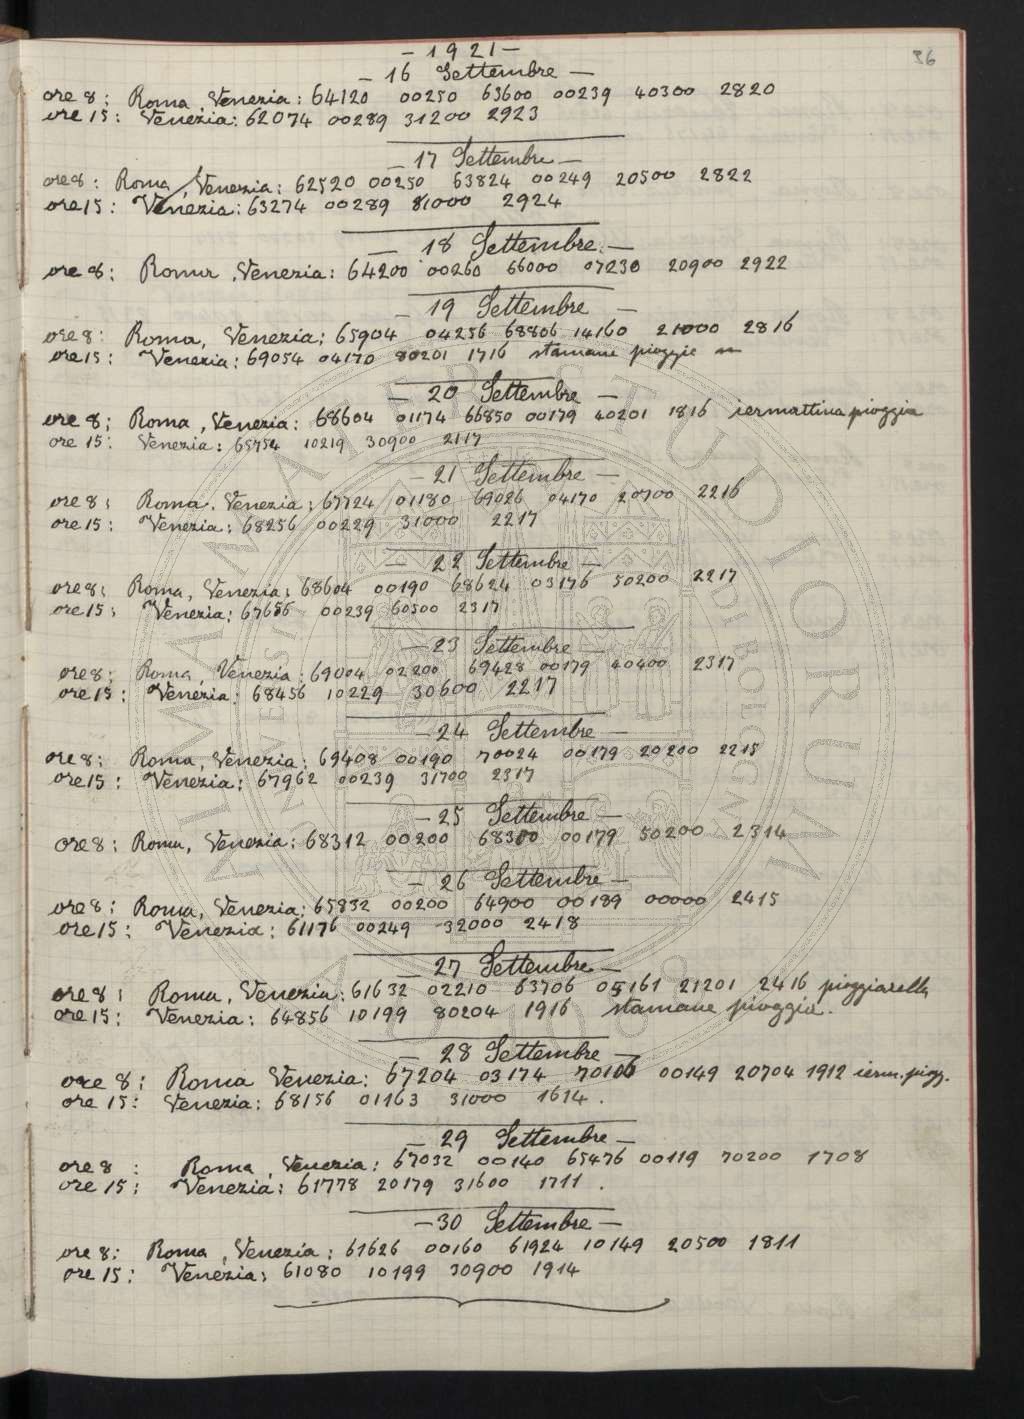 36
- 1921 -
- 16 Settembre -
ore 8: Roma, Venezia: 64120 00250 63600 00239 40300 2820
ore 15: Venezia: 62074 00289 31200 2923
- 17 Settembre -
ore 8: Roma, Venezia: 62520 00250 63824 00249 20500 2822
ore 15: Venezia: 63274 00289 81000 2924
- 18 Settembre. -
ore 8: Roma, Venezia: 64200 00260 66000 07230 20900 2922
- 19 Settembre -
ore 8: Roma, Venezia: 65904 04256 68806 14160 21000 2816
ore 15: Venezia: 69054 04170 80201 1716 stamane pioggie
- 20 Settembre -
ore 8: Roma, Venezia: 68604 01174 66850 00179 40201 1816 iermattina pioggia
ore 15: Venezia: 65754 10219 30900 2117
- 21 Settembre -
ore 8: Roma, Venezia: 67724 01180 69026 04170 20700 2216
ore 15: Venezia: 68256 00229 31000 2217
- 22 Settembre -
ore 8: Roma, Venezia: 68604 00190 68624 03176 50200 2217
ore 15: Venezia: 67656 00239 60500 2317
- 23 Settembre -
ore 8: Roma, Venezia: 69004 02200 69428 00179 40400 2317
ore 15: Venezia: 68456 10229 30600 2217
- 24 Settembre -
ore 8: Roma, Venezia: 69408 00190 70024 00179 20200 2218
ore 15: Venezia: 67962 00239 31700 2317
- 25 Settembre -
ore 8: Roma, Venezia: 68312 00200 68300 00179 50200 2314
- 26 Settembre -
ore 8: Roma, Venezia: 65832 00200 64900 00189 00000 2415
ore 15: Venezia: 61176 00249 32000 2418
- 27 Settembre -
ore 8: Roma, Venezia: 61632 02210 63706 05161 21201 2416 pioggiarella
ore 15: Venezia: 64856 10199 80204 1916 stamane pioggia.
- 28 Settembre -
ore 8: Roma Venezia: 67204 03174 70106 00149 20704 1912 ierm. piogg.
ore 15: Venezia: 68156 01163 31000 1614.
- 29 Settembre -
ore 8: Roma, Venezia: 67032 00140 65476 00119 70200 1708
ore 15: Venezia: 61778 20179 31600 1711.
- 30 Settembre -
ore 8: Roma, Venezia: 61626 00160 61924 10149 20500 1811
ore 15: Venezia: 61080 10199 30900 1914
ALMA MATER STUDIORUM